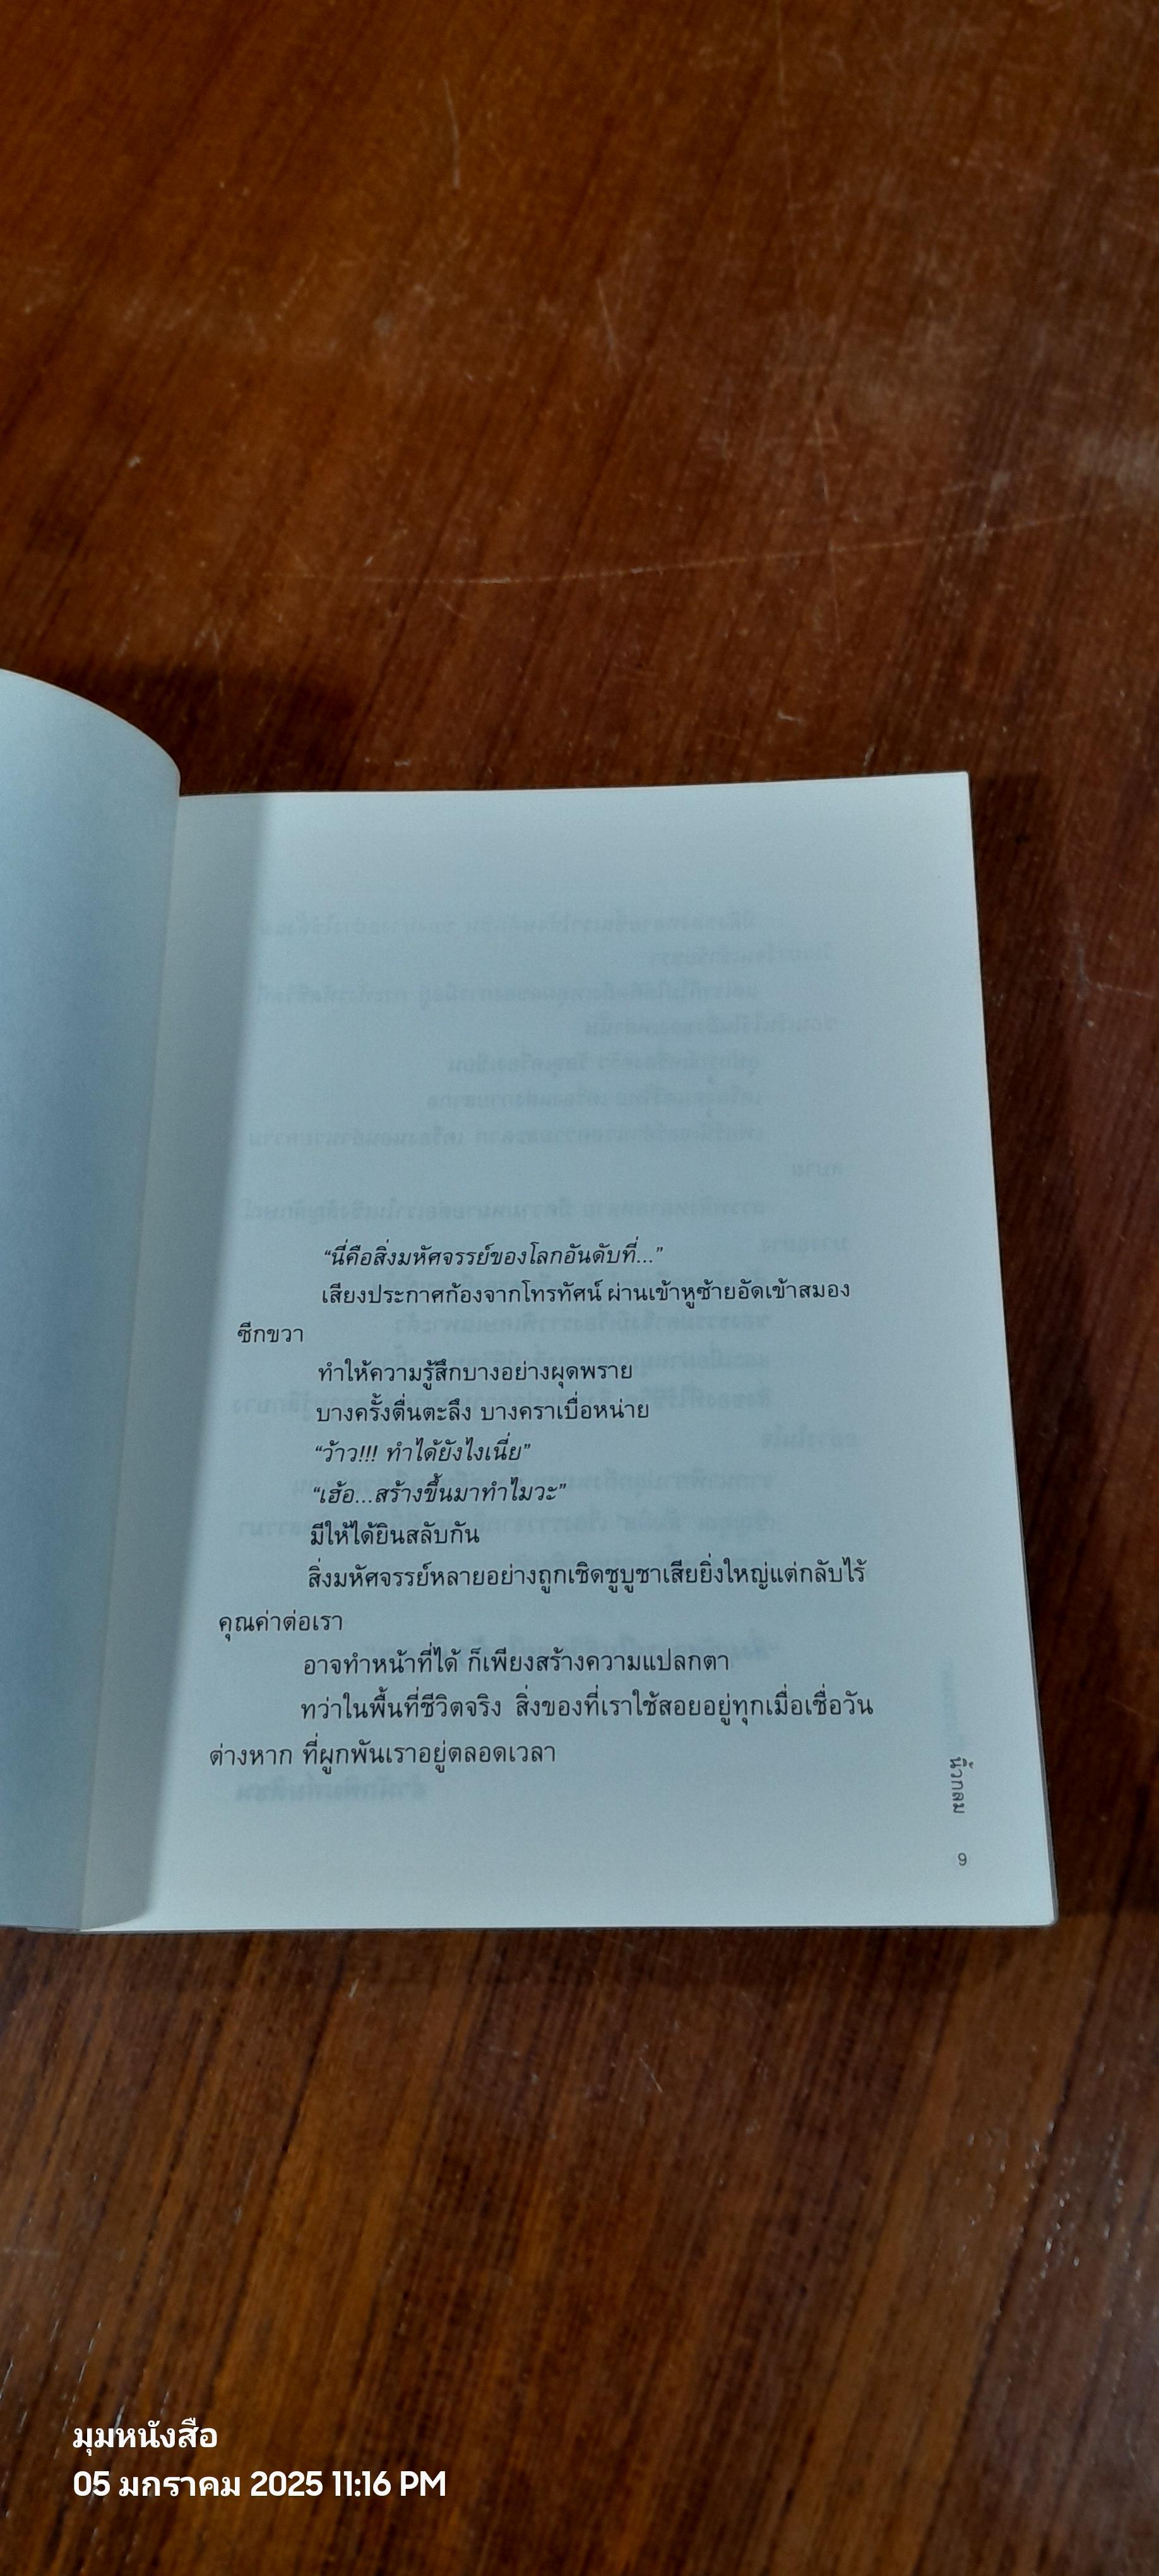 “นี่คือสิ่งมหัศจรรย์ของโลกอันดับที่...”
เสียงประกาศก้องจากโทรทัศน์ ผ่านเข้าหูซ้ายอัดเข้าสมอง
ซีกขวา
ทำให้ความรู้สึกบางอย่างผุดพราย
บางครั้งตื่นตะลึง บางคราเบื่อหน่าย
“ว้าว!!! ทำได้ยังไงเนี่ย”
“เฮ้อ...สร้างขึ้นมาทำไมวะ”
มีให้ได้ยินสลับกัน
สิ่งมหัศจรรย์หลายอย่างถูกเชิดชูบูชาเสียยิ่งใหญ่แต่กลับไร้
คุณค่าต่อเรา
อาจทำหน้าที่ได้ ก็เพียงสร้างความแปลกตา
ทว่าในพื้นที่ชีวิตจริง สิ่งของที่เราใช้สอยอยู่ทุกเมื่อเชื่อวัน
ต่างหาก ที่ผูกพันเราอยู่ตลอดเวลา
นิ้วกลม
9
มุมหนังสือ
05 มกราคม 2025 11:16 PM